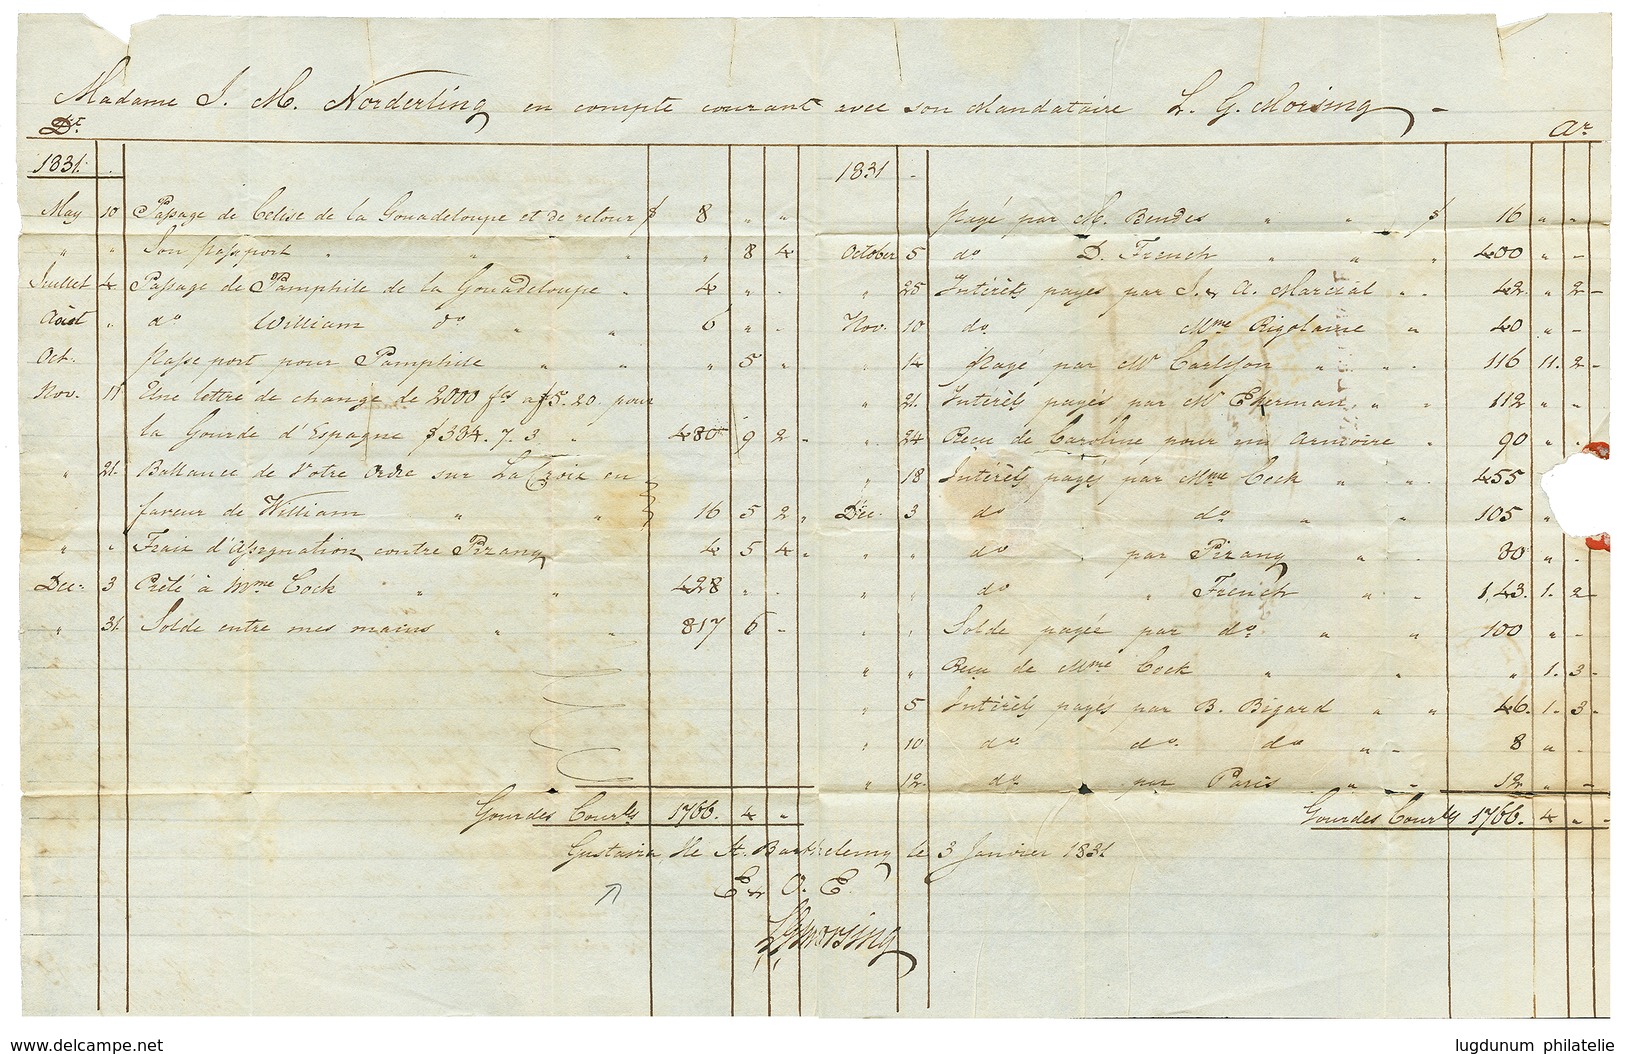 Madame J. M. Norderling en compte courant avec son Mandataire L. G. Morsing
Dr. Ar
1831.
May 10 Passage de Célise de la Gouadeloupe et de retour $ 8 " "
" " Son passport " " " " 8 4
Juillet 4 Passage de Pamphile de la Gouadeloupe " 4 " "
Août " do William do " " 6 " "
Oct. passe port pour Pamphile " " " 5 "
Nov. 11 Une lettre de change de 2000 fcs a $5.20 pour
la Gourde d'Espagne $384.7.3. " 480 9 2
" 21. Ballance de Votre Ordre sur LaCroix en
faveur de William " " 16 5 2
" " Frais d'Assignation contre Pirang 4 5 4
Dec: 3 Prêté à Mme Cock " " 428 " "
" 31. Solde entre mes mains " " 817 6 -
Gourdes Courtes 1766. 4 "
1831
payé par M. Bendes " " $ 16 " "
October 5 do D. French " " " 400 " -
" 25 Intérêts payés par J. & A. Marcial " . 42. " 2 -
Nov. 10 do Mme Rigolaine " 40 " -
" 14 Payé par Mr Carlsson " . . 116 11. 2 -
" 21. Intérêts payés par Mr Ekerman " " 112 " "
" 24 Recu de Caroline pour un Armoire " 90 " .
" 18 Intérêts payés par Mme Cock " " 455
Déc. 3 do do " " 105 "
" " do par Pirang " " 80 " .
" " do " French " - 1,43. 1. 2 -
" " Solde payée par do. " " 100 " -
" " Recu de Mme Cock " " " 1. 3 -
" 5 Intérêts payés par B. Bigard " " 46. 1. 3 -
" 10 do. do. do " - 8 " .
" 12. do. par Paris " - 12 " -
Gourdes Courtes 1766. 4 " -
Gustavia, Ile St. Barthelemy le 3 Janvier 1831
E & O. E.
LGMorsing
www.delcampe.net
lugdunum philatelie